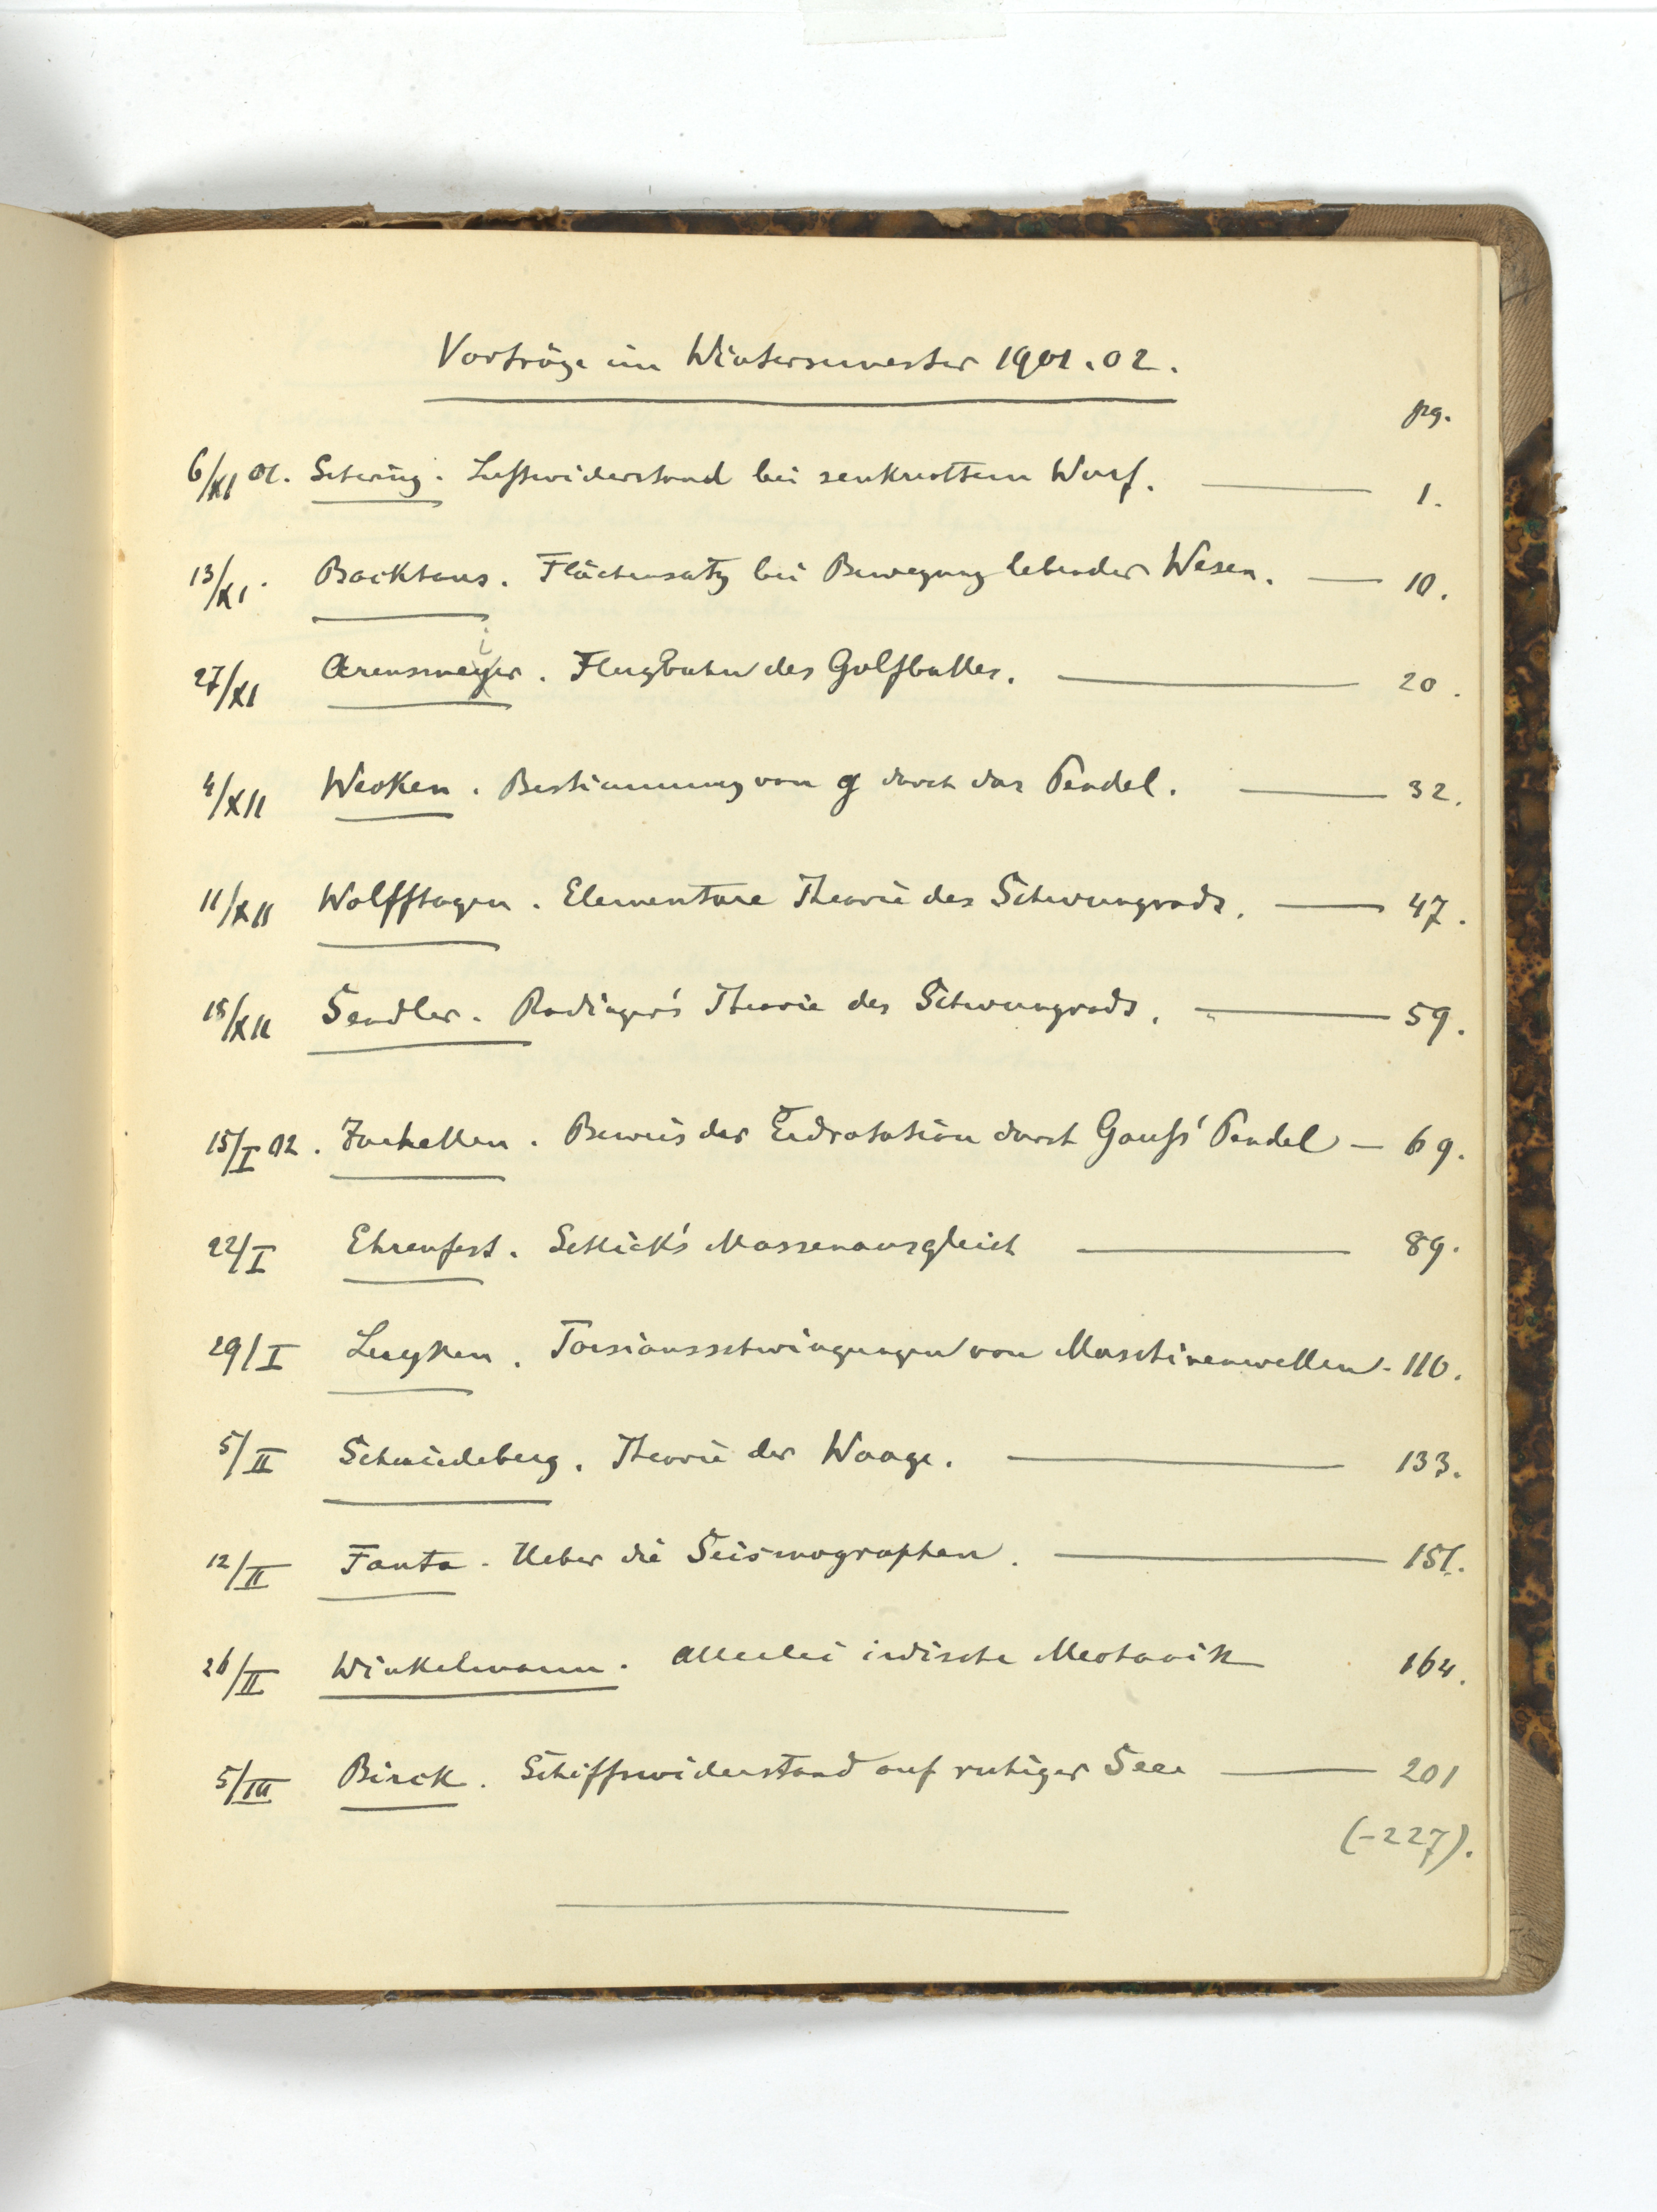 Vorträge im Wintersemester 1901.02.
pg.
6/XI 01. Schering. Luftwiderstand bei senkrechtem Wurf. 1.
13/XI. Backhaus. Flächensatz bei Bewegung lebender Wesen. 10.
i
27/XI Arensmeyer. Flugbahn des Golfballes. 20.
4/XII Wecken. Bestimmung von g durch das Pendel. 32.
11/XII Wolffhagen. Elementare Theorie des Schwungrads. 47.
18/XII Sendler. Radinger's Theorie des Schwungrads. 59.
15/I 02. Beweis der Erdrotation durch Gauß' Pendel — 69.
22/I Ehrenfest. Schlick's Massenausgleich 89.
29/I Luyken. Torsionsschwingungen von Maschinenwellen - 110.
5/II Schmiedeberg. Theorie der Waage. 133.
12/II Fanta. Ueber die Seismographen. 151.
26/II Winkelmann. Allerlei irdische Mechanik 164.
5/III Birck. Schiffswiderstand auf ruhiger See 201
(-227).